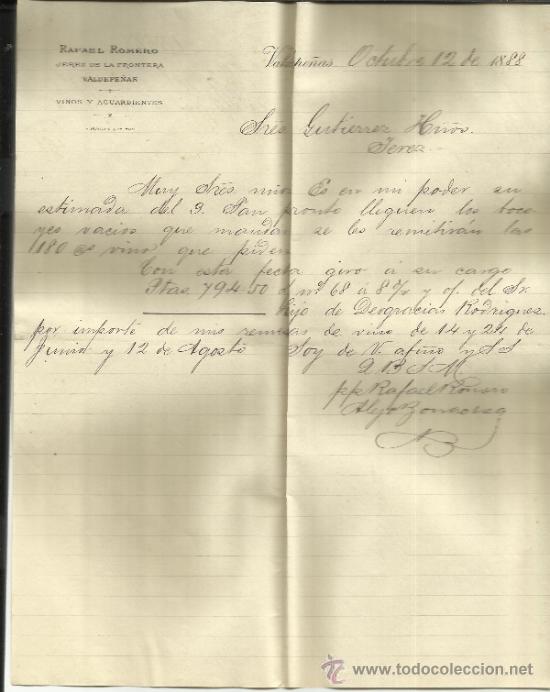 RAFAEL ROMERO
JEREZ DE LA FRONTERA
VALDEPEÑAS
VINOS Y AGUARDIENTES
Valdepeñas Octubre 12 de 1888
Srés Gutierrez Hnos.
Jerez
Muy Srés mios Es en mi poder su
estimada del 9. Tan pronto lleguen los boco-
yes vacios que mandan se les remitirán las
180 @s vino que piden
Con esta fecha giro á su cargo
Ptas. 794.50 nº 68 á 8 d/v y of. del Sr.
Hijo de Deogracias Rodriguez
por importe de mis remesas de vino de 14 y 24 de
Junio y 12 de Agosto Soy de V. afmo y S S
Q B S M
pp Rafael Romero
Alejo
todocoleccion
www.todocoleccion.net